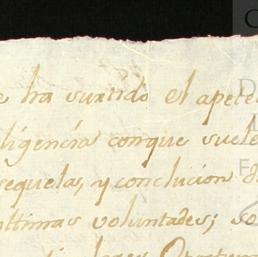 e ha surtido el apete
ligencia conque suele
sequelas, y conclucion de
ultimas voluntades; se